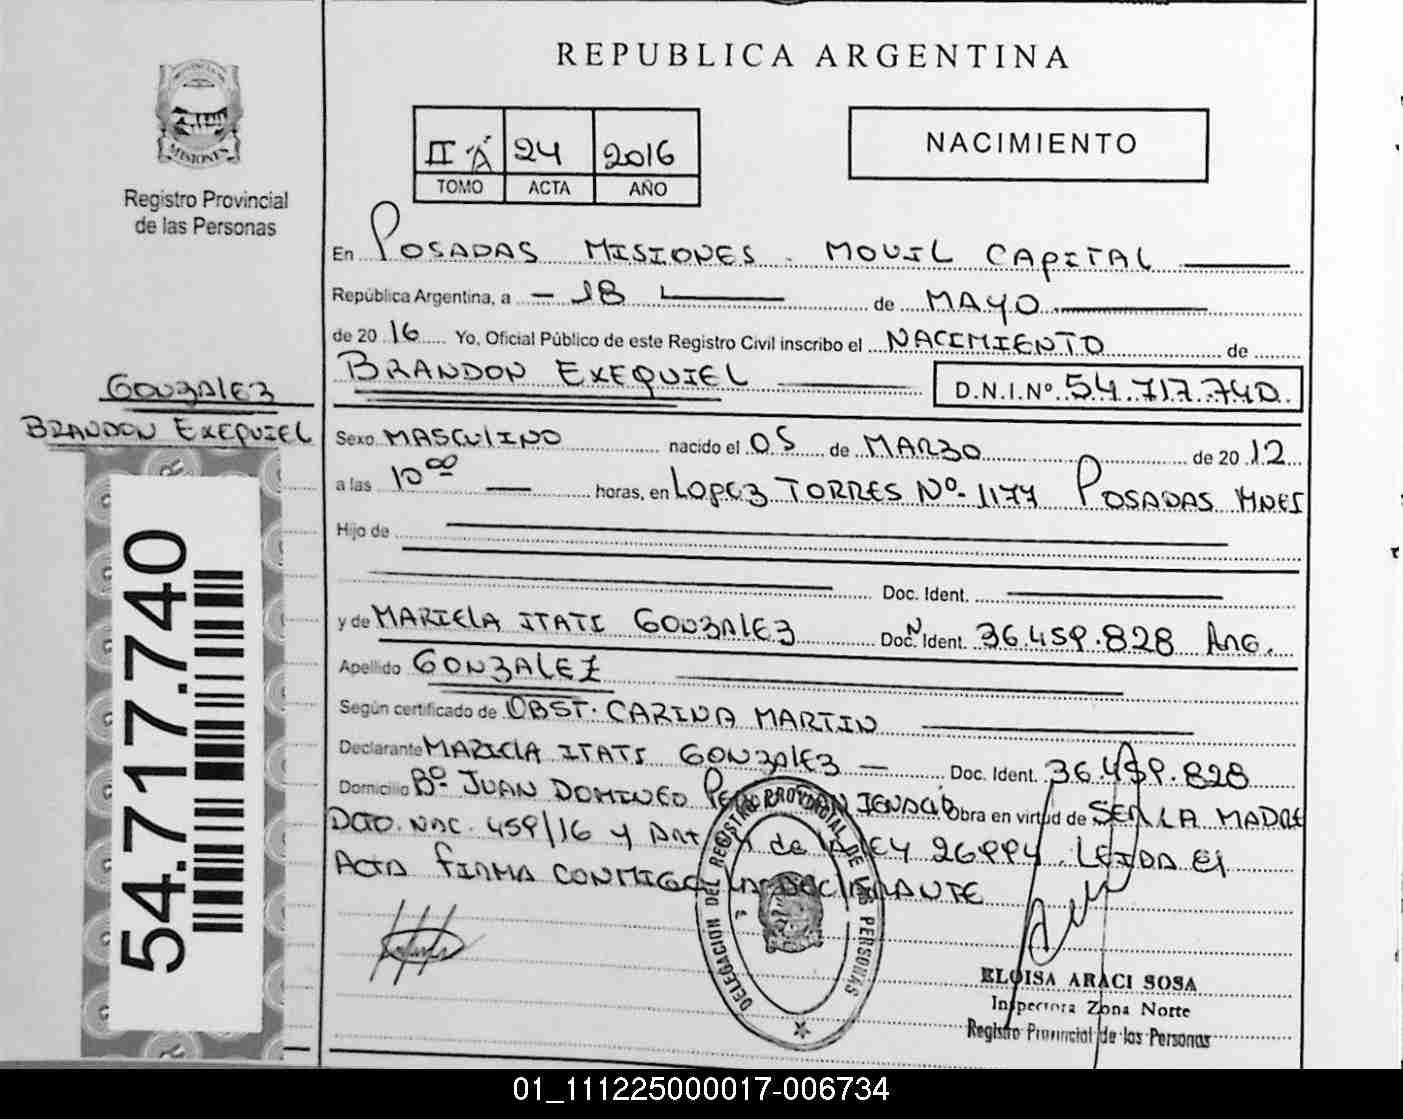 REPUBLICA ARGENTINA
MISIONES
Registro Provincial
de las Personas
II A 24 2016
TOMO ACTA AÑO
NACIMIENTO
En POSADAS MISIONES - MOVIL CAPITAL
República Argentina, a - 18 de MAYO
de 20 16 Yo, Oficial Público de este Registro Civil inscribo el NACIMIENTO de
BRANDON EXEQUIEL D.N.I.Nº 54.717.740
GONZALEZ
BRANDON EXEQUIEL
54.717.740
Sexo MASCULINO nacido el 05 de MARZO de 20 12
a las 10 00 horas, en LOPEZ TORRES Nº- 1177 POSADAS MNES
Hijo de
Doc. Ident.
y de MARIELA ITATI GONZALEZ Doc. Ident. N 36.459.828 ARG.
Apellido GONZALEZ
Según certificado de OBST. CARINA MARTIN
Declarante MARIELA ITATI GONZALEZ - Doc. Ident. 36.459.828
Domicilio Bº JUAN DOMINGO IGNACIO Obra en virtud de SER LA MADRE
DCTO. NAC. 459/16 Y ART de LA LEY 26994. LEIDA El
ACTA FIRMA CONMIGO LA DECLARANTE
DELEGACION DEL REGISTRO PROVINCIAL DE LAS PERSONAS
ELOISA ARACI SOSA
Inspectora Zona Norte
Registro Provincial de las Personas
01_111225000017-006734